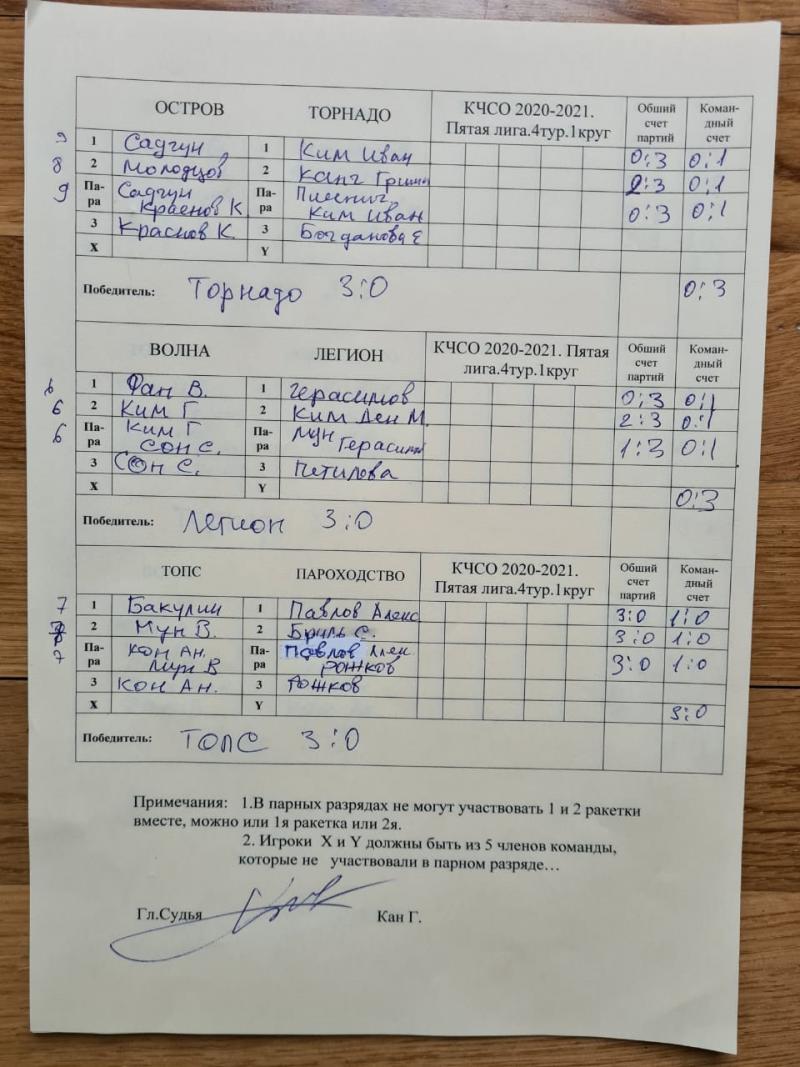 ОСТРОВ ТОРНАДО КЧСО 2020-2021. Пятая лига.4тур.1круг Обший счет партий Коман-дный счет
9 1 Садгун 1 Ким Иван 0:3 0:1
8 2 Молодцов 2 Канг 2:3 0:1
9 Па-ра Садгун Па-ра
Краснов К Ким Иван 0:3 0:1
3 Краснов К. 3 Богданова Е
X Y
Победитель: Торнадо 3:0 0:3
ВОЛНА ЛЕГИОН КЧСО 2020-2021. Пятая лига.4тур.1круг Обший счет партий Коман-дный счет
6 1 Фан В. 1 Герасимов 0:3 0:1
6 2 Ким Г 2 Ким Ден М. 2:3 0:1
6 Па-ра Ким Г Па-ра Мун
Сон С. Герасимов 1:3 0:1
3 Сон С. 3 Петилова
X Y 0:3
Победитель: Легион 3:0
ТОПС ПАРОХОДСТВО КЧСО 2020-2021. Пятая лига.4тур.1круг Обший счет партий Коман-дный счет
7 1 Бакулин 1 Павлов Алекс 3:0 1:0
2 Мун В. 2 Бриль С. 3:0 1:0
7 Па-ра Кон Ан. Па-ра Павлов Алек
Мун В Рожков 3:0 1:0
3 Кон Ан. 3 Рожков
X Y 3:0
Победитель: ТОПС 3:0
Примечания: 1.В парных разрядах не могут участвовать 1 и 2 ракетки
вместе, можно или 1я ракетка или 2я.
2. Игроки X и Y должны быть из 5 членов команды,
которые не участвовали в парном разряде…
Гл.Судья Кан Г.